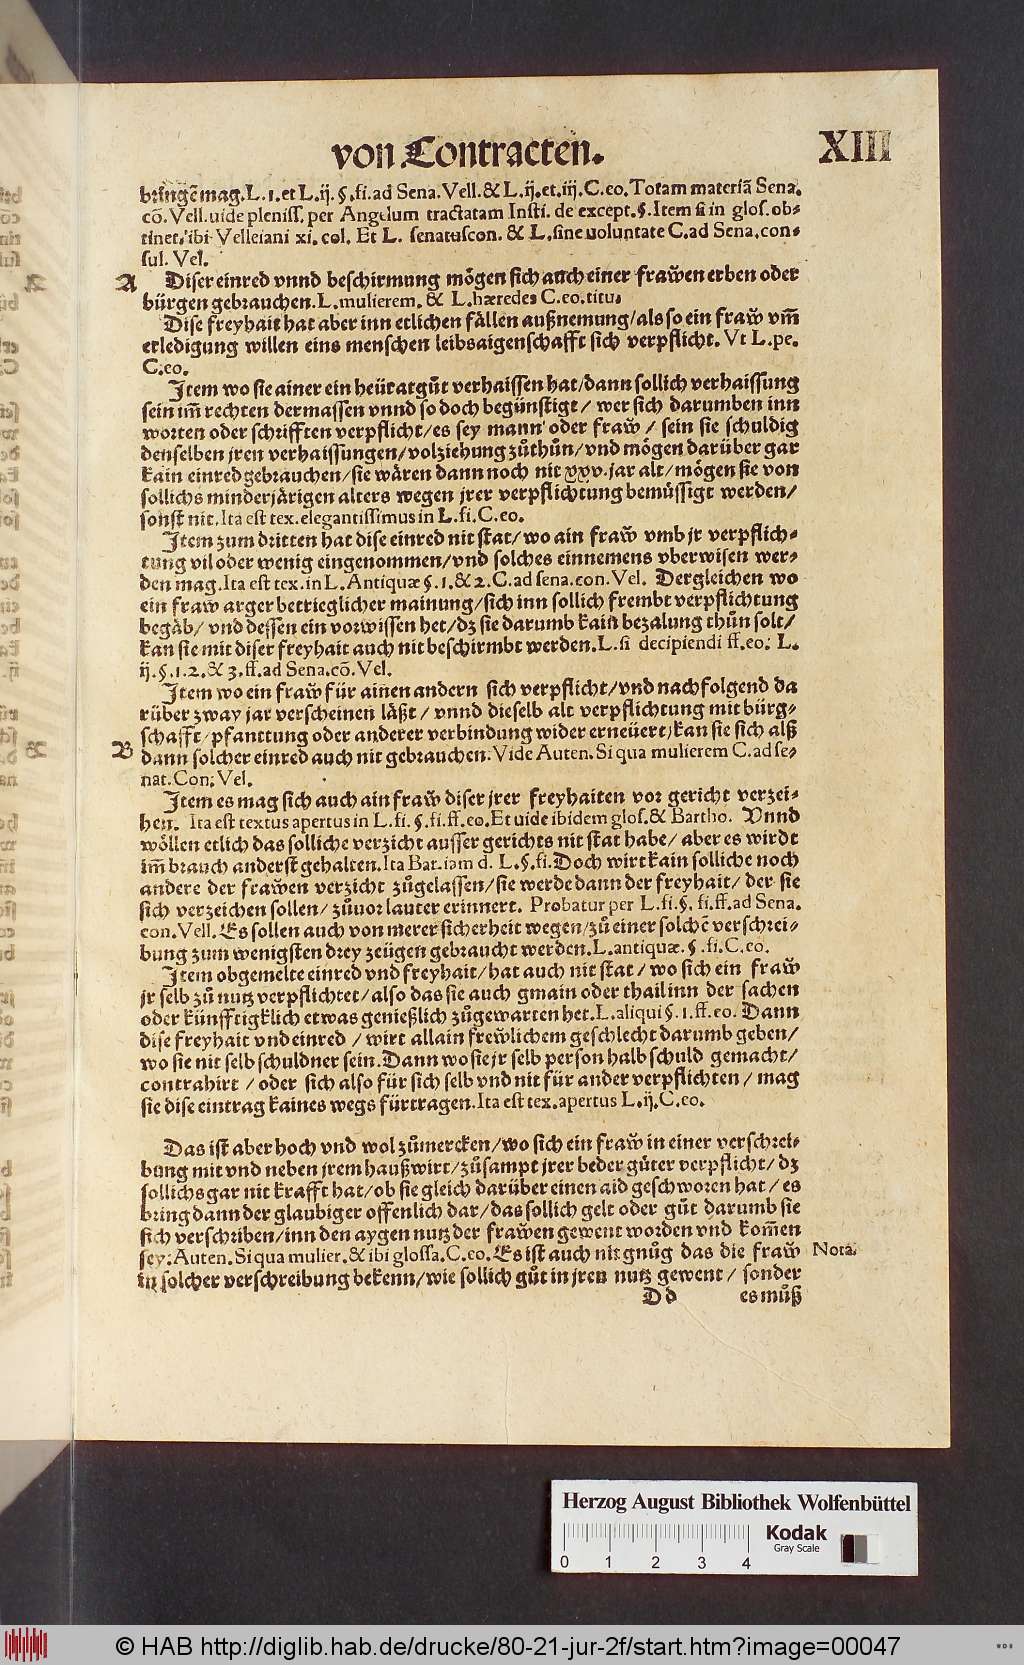 von Contracten. XIII
bringẽ mag. L. 1. et L. ij. §. fi. ad Sena. Vell. & L. ij. et. iij. C. eo. Totam materiã Sena.
cõ. Vell. uide pleniss. per Angelum tractatam Insti. de except. §. Item si in glos. ob-
tinet, ibi Velleiani xi. col. Et L. senatuscon. & L. sine uoluntate C. ad Sena. con-
sul. Vel.
A Diser einred vnnd beschirmung mögen sich auch einer frawen erben oder
bürgen gebrauchen. L. mulierem. & L. hæredes C. eo. titu.
Dise freyhait hat aber inn etlichen fällen außnemung/ als so ein fraw vm̃
erledigung willen eins menschen leibsaigenschafft sich verpflicht. Vt L. pe.
C. eo.
Item wo sie ainer ein heüratgůt verhaissen hat/ dann sollich verhaissung
sein im̃ rechten dermassen vnnd so doch begünstigt/ wer sich darumben inn
worten oder schrifften verpflicht/ es sey mann oder fraw/ sein sie schuldig
denselben jren verhaissungen/ volziehung zůthůn/ vnd mögen darüber gar
kain einred gebrauchen/ sie wären dann noch nit xxv. jar alt/ mögen sie von
sollichs minderjärigen alters wegen jrer verpflichtung bemüssigt werden/
sonst nit. Ita est tex. elegantissimus in L. fi. C. eo.
Item zum dritten hat dise einred nit stat/ wo ain fraw vmb jr verpflich-
tung vil oder wenig eingenommen/ vnd solches einnemens vberwisen wer-
den mag. Ita est tex. in L. Antiquæ §. 1. & 2. C. ad sena. con. Vel. Dergleichen wo
ein fraw arger betrieglicher mainung/ sich inn sollich frembt verpflichtung
begäb/ vnd dessen ein vorwissen het/ dz sie darumb kain bezalung thůn solt/
kan sie mit diser freyhait auch nit beschirmbt werden. L. si decipiendi ff. eo. L.
ij. §. 1. 2. & 3. ff. ad Sena. cõ. Vel.
Item wo ein fraw für ainen andern sich verpflicht/ vnd nachfolgend da
rüber zway jar verscheinen läßt/ vnnd dieselb alt verpflichtung mit bürg-
schafft/ pfanttung oder anderer verbindung wider erneüert/ kan sie sich alß
B dann solcher einred auch nit gebrauchen. Vide Auten. Si qua mulierem C. ad se-
nat. Con. Vel.
Item es mag sich auch ain fraw diser jrer freyhaiten vor gericht verzei-
hen. Ita est textus apertus in L. fi. §. fi. ff. eo. Et uide ibidem glos. & Bartho. Vnnd
wöllen etlich das solliche verzicht ausser gerichts nit stat habe/ aber es wirdt
im̃ brauch anderst gehalten. Ita Bar. iam d. L. §. fi. Doch wirt kain solliche noch
andere der frawen verzicht zůgelassen/ sie werde dann der freyhait/ der sie
sich verzeichen sollen/ zůuor lauter erinnert. Probatur per L. fi. §. fi. ff. ad Sena.
con. Vell. Es sollen auch von merer sicherheit wegen/ zů einer solchẽ verschrei-
bung zum wenigsten drey zeügen gebraucht werden. L. antiquæ. §. fi. C. eo.
Item obgemelte einred vnd freyhait/ hat auch nit stat/ wo sich ein fraw
jr selb zů nutz verpflichtet/ also das sie auch gmain oder thail inn der sachen
oder künfftigklich etwas genießlich zůgewarten het. L. aliqui §. 1. ff. eo. Dann
dise freyhait vnd einred/ wirt allain frewlichem geschlecht darumb geben/
wo sie nit selb schuldner sein. Dann wo sie jr selb person halb schuld gemacht/
contrahirt/ oder sich also für sich selb vnd nit für ander verpflichten/ mag
sie dise eintrag kaines wegs fürtragen. Ita est tex. apertus L. ij. C. eo.
Das ist aber hoch vnd wol zůmercken/ wo sich ein fraw in einer verschrei-
bung mit vnd neben jrem haußwirt/ zůsampt jrer beder güter verpflicht/ dz
sollichs gar nit krafft hat/ ob sie gleich darüber einen aid geschworen hat/ es
bring dann der glaubiger offenlich dar/ das sollich gelt oder gůt darumb sie
sich verschriben/ inn den aygen nutz der frawen gewent worden vnd kom̃en
sey. Auten. Si qua mulier. & ibi glossa. C. eo. Es ist auch nit gnůg das die fraw Nota.
in solcher verschreibung bekenn/ wie sollich gůt in jren nutz gewent/ sonder
D d es můß
Herzog August Bibliothek Wolfenbüttel
Kodak
Gray Scale
0 1 2 3 4
© HAB http://diglib.hab.de/drucke/80-21-jur-2f/start.htm?image=00047